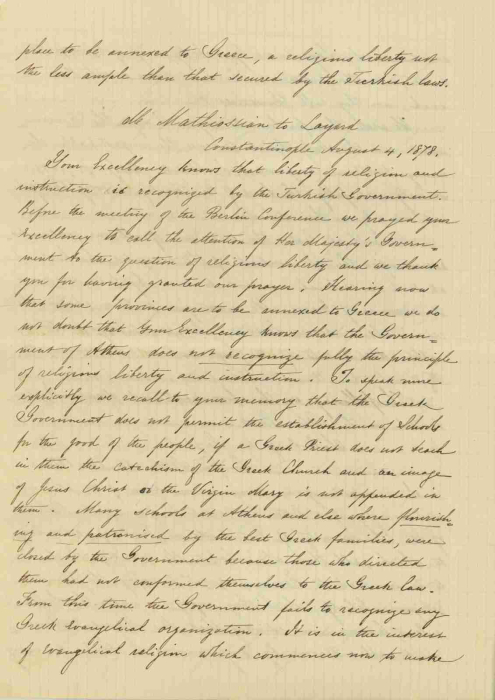 place to be annexed to Greece, a religious liberty not
the less ample than that secured by the Turkish laws.
M. Mathiossian to Layard
Constantinople August 4, 1878.
Your Excellency knows that liberty of religion and
instruction is recognized by the Turkish Government.
Before the meeting of the Berlin Conference we prayed your
Excellency to call the attention of Her Majesty's Govern-
ment to the question of religious liberty and we thank
you for having granted our prayer. Hearing now
that some provinces are to be annexed to Greece we do
not doubt that Your Excellency knows that the Govern-
ment of Athens does not recognize fully the principle
of religious liberty and instruction. To speak more
explicitly we recall to your memory that the Greek
Government does not permit the establishment of Schools
for the good of the people, if a Greek Priest does not teach
in them the catechism of the Greek Church and an image
of Jesus Christ or the Virgin Mary is not appended in
them. Many schools at Athens and else where flourish-
ing and patronised by the best Greek families, were
closed by the Government because those who directed
them had not conformed themselves to the Greek law.
From this time the Government fails to recognize any
Greek Evangelical organization. It is in the interest
of Evangelical religion which commences now to make